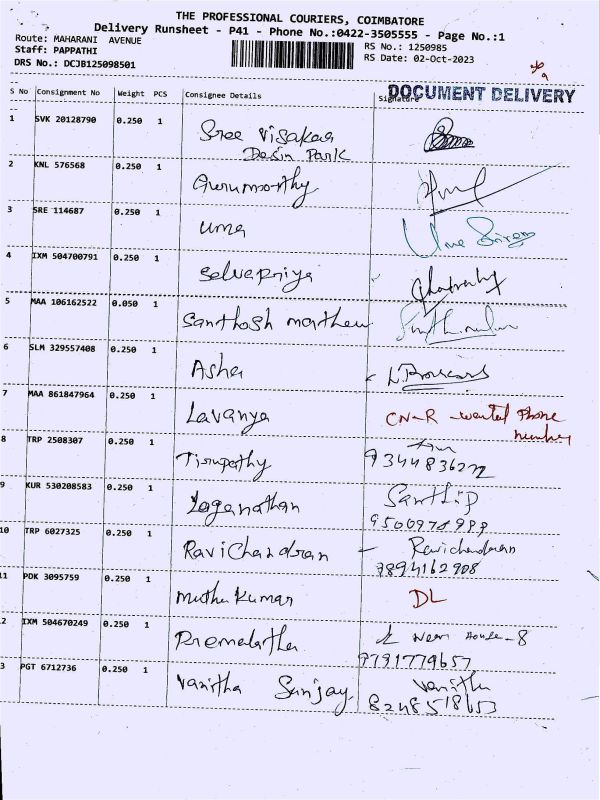 THE PROFESSIONAL COURIERS, COIMBATORE
Delivery Runsheet - P41 - Phone No.:0422-3505555 - Page No.:1
Route: MAHARANI AVENUE
Staff: PAPPATHI
RS No.: 1250985
DRS No.: DCJB125098501
RS Date: 02-Oct-2023
DOCUMENT DELIVERY
S No Consignment No Weight PCS Consignee Details Signature
1 SVK 20128790 0.250 1 Sree Visakaa
Desin Park
2 KNL 576568 0.250 1 Gurumoorthy
3 SRE 114687 0.250 1 uma Uma
4 IXM 504700791 0.250 1 Selvapriya
5 MAA 106162522 0.050 1 Santhosh mathew
6 SLM 329557408 0.250 1 Asha
7 MAA 861847964 0.250 1 Lavanya CN-R - wanted Phone
number
8 TRP 2508307 0.250 1 Tirupathy
9344836272
9 KUR 530208583 0.250 1 Loganathan Santhip
10 TRP 6027325 0.250 1 Ravichandran - Ravichandran
7894162908
11 PDK 3095759 0.250 1 muthu kumar DL
2 IXM 504670249 0.250 1 Premelatha near House-8
9791779657
3 PGT 6712736 0.250 1 Vanitha Sanjay Vanitha
8248518653